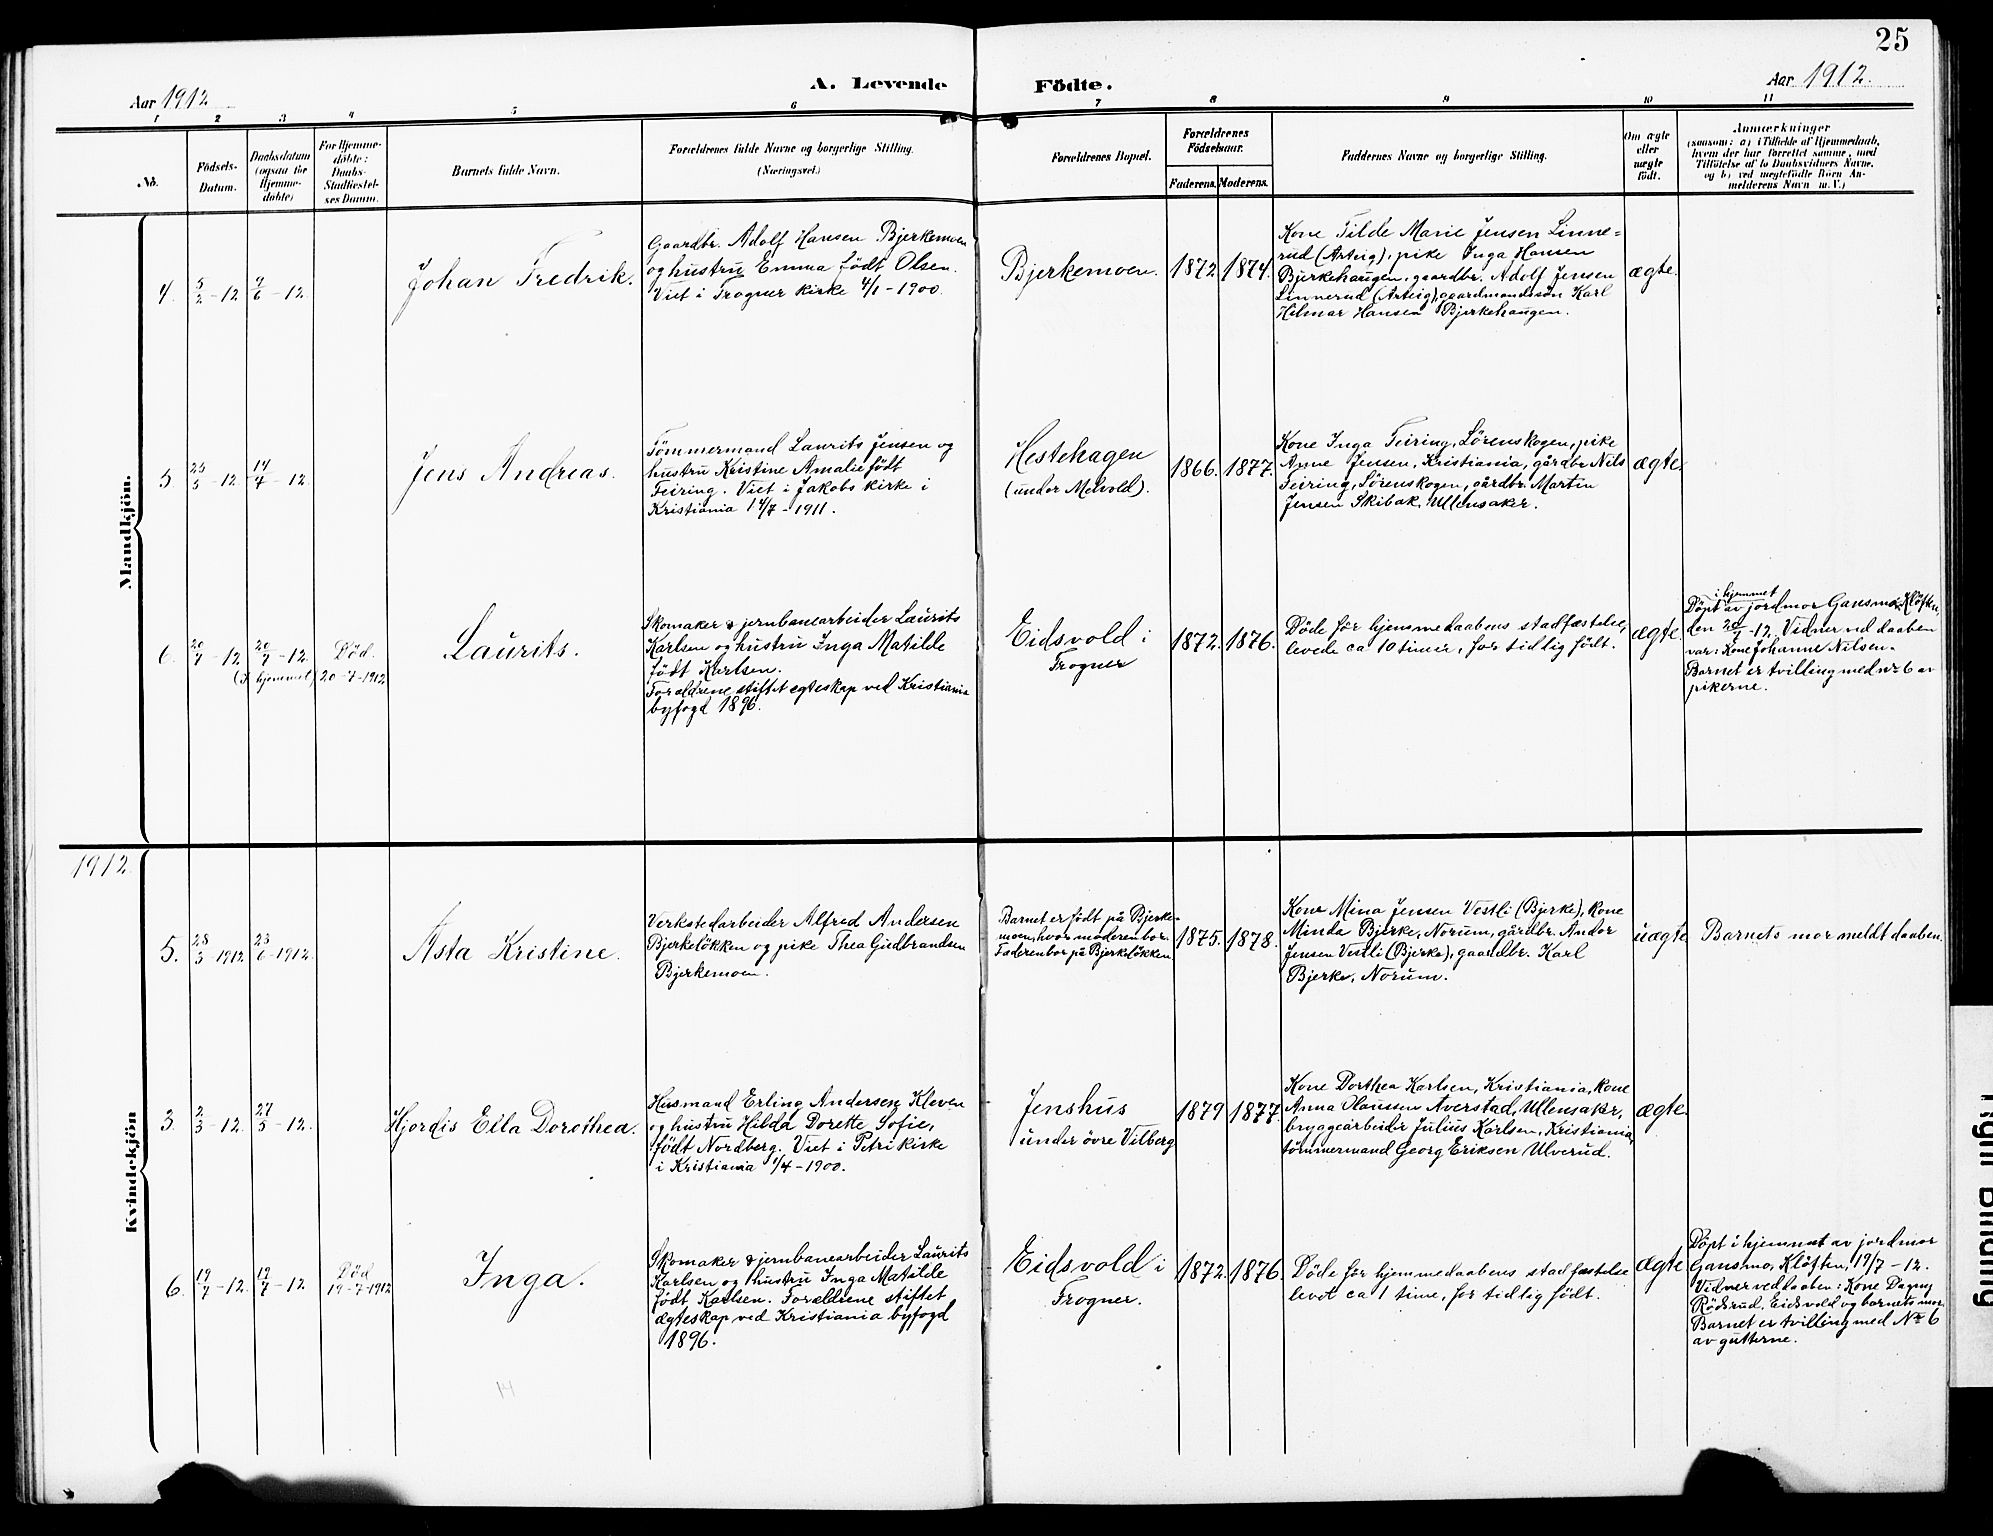 25
Aar 1912
A. Levende Födte.
Aar 1912.
1 2 3 4 5 6 7 8 9 10 11
No.
Födsels-
Datum.
Daabsdatum
(ogsaa for
Hjemme-
döbte)
For Hjemme-
döbte:
Daabs-
Stadfæstel-
ses Datum.
Barnets fulde Navn.
Forældrenes fulde Navne og borgerlige Stilling.
(Næringsvei.)
Forældrenes Bopæl.
Forældrenes
Födselsaar.
Faderens. Moderens.
Faddernes Navne og borgerlige Stilling.
Om ægte
eller
uægte
födt.
Anmærkninger
(saasom: a) i Tilfælde af Hjemmedaab,
hvem der har forrettet samme, med
Tilföielse af to Daabsvidners Navne,
og b) ved uægtefödte Börn An-
melderens Navn m. V.)
Mandkjön.
4. 5/2-12 9/6-12.
Johan Fredrik.
Gaardbr. Adolf Hansen Bjerkemoen
og hustru Emma født Olsen.
Viet i Frogner kirke 4/1-1900.
Bjerkemoen.
1872 1874.
Kone Tilde Marie Jensen Linne=
rud (Arteig), pike Inga Hansen
Bjerkehaugen, gaardbr. Adolf Jensen
Linnerud (Arteig), gaardmandssøn Karl
Hilmar Hansen Bjerkehaugen.
ægte.
5 /3-12 14/7-12.
Jens Andreas.
Tømmermand Laurits Jensen og
hustru Kristine Amalie født
Feiring. Viet i Jakobs kirke i
Kristiania 14/7-1911.
Hestehagen
(under Melvold).
1866. 1877.
Kone Inga Feiring, Lørenskogen, pike
Anne Jensen, Kristiania, gårdbr. Nils
Feiring, Lørenskogen, gårdbr. Martin
Jensen Skibak, Ullensaker.
ægte.
6. 20/7-12 20/7-12.
(I hjemmet)
Død.
20-7-1912
Laurits.
Skomaker & jernbanearbeider Laurits
Karlsen og hustru Inga Matilde
født Karlsen.
Forældrene stiftet egteskap ved Kristiania
byfogd 1896.
Eidsvold i
Frogner
1872. 1876.
Døde før hjemmedaabens stadfæstelse,
levede ca 10 timer, for tidlig født.
ægte.
i hjemmet
Døpt av jordmor Gansmo, Kløften,
den 20/7-12. Vidner ved daaben
var: Kone Johanne Nilsen.
Barnet er tvilling med nr 6 av
pikerne.
1912.
Kvindekjön
5. 28/3-1912 23/6-1912.
Asta Kristine.
Verkstedarbeider Alfred Andersen
Bjerkeløkken og pike Thea Gudbrandsen
Bjerkemoen.
Barnet er født på Bjerke-
moen, hvor moderen bor.
Faderen bor på Bjerkeløkken
1875. 1878.
Kone Mina Jensen Vestli (Bjerke), kone
Minda Bjerke, Norum, gårdbr. Andor
Jensen Vestli (Bjerke), gaardbr. Karl
Bjerke, Norum.
uægte
Barnets mor meldt daaben.
3. 2/3-12. 27/5-12.
Hjordis Ella Dorothea.
Husmand Erling Andersen Kleven
og hustru Hilda Dorette Sofie,
født Nordberg. Viet i Petri kirke
i Kristiania 1/4-1900.
Jenshus
under øvre Vilberg
1879 1877.
Kone Dorthea Karlsen, Kristiania, kone
Anna Olaussen Averstad, Ullensaker,
bryggearbeider Julius Karlsen, Kristiania,
tømmermand Georg Eriksen Ulverud.
ægte.
6. 19/7-12. 19/7-12
Død
19-7-1912
Inga.
Skomaker & jernbanearbeider Laurits
Karlsen og hustru Inga Matilde
født Karlsen. Forældrene stiftet
ægteskap ved Kristiania byfogd
1896.
Eidsvold i
Frogner.
1872. 1876.
Døde før hjemmedaabens stadfæstelse
levet ca 1 time, for tidlig født.
ægte
Døpt i hjemmet av jordmor
Gansmo, Kløften, 19/7-12.
Vidner ved daaben: Kone Dagny
Rödsrud, Eidsvold og barnets mor
Barnet er tvilling med Nr 6
av gutterne.
14